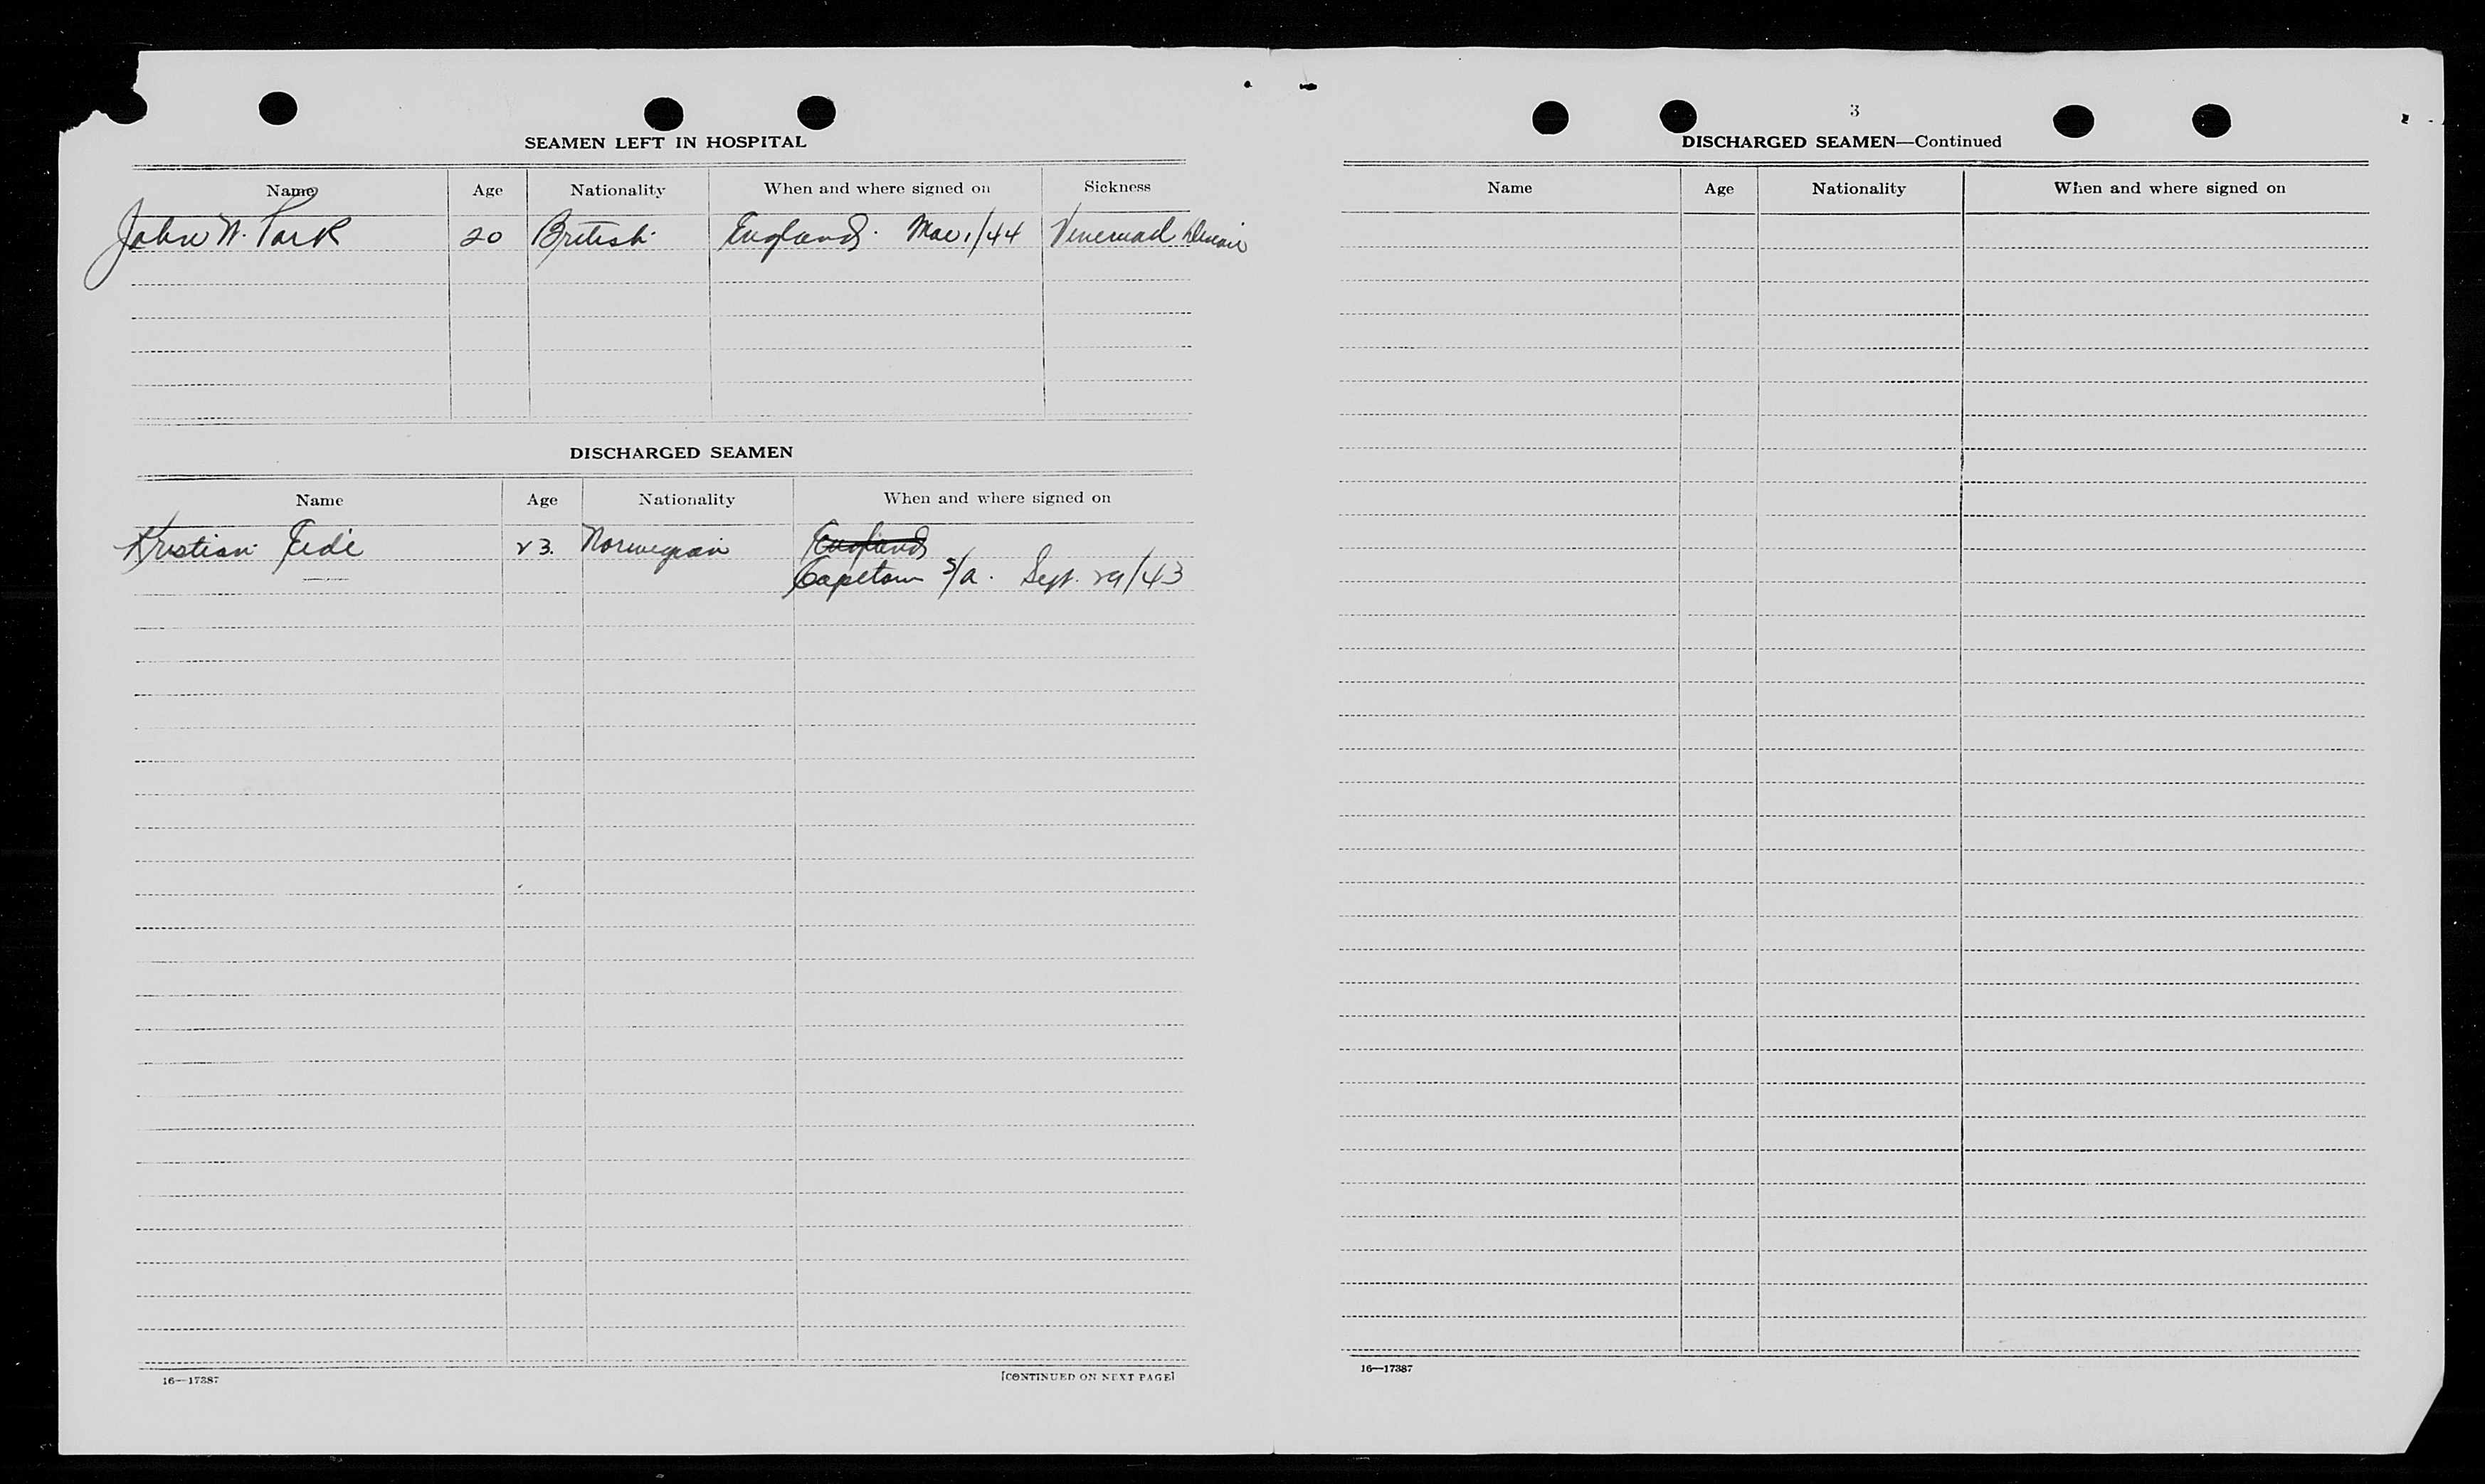 SEAMEN LEFT IN HOSPITAL
Name Age Nationality When and where signed on Sickness
John W. Park 20 British England. Mar. 1/44 Venereal
DISCHARGED SEAMEN
Name Age Nationality When and where signed on
Kristian 23. Norwegian England
Capetown S/A. Sept. 29/43
16—17387
[CONTINUED ON NEXT PAGE]
3
DISCHARGED SEAMEN—Continued
Name Age Nationality When and where signed on
16—17387